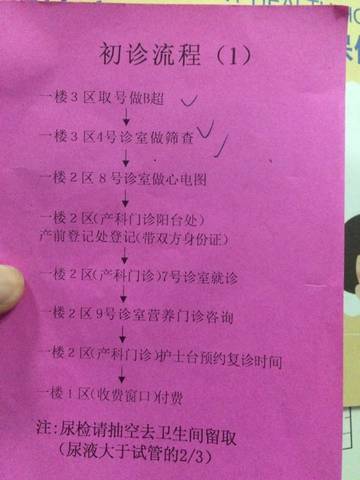 初诊流程（1）
一楼3区取号做B超
一楼3区4号诊室做筛查
一楼2区8号诊室做心电图
一楼2区(产科门诊阳台处)
产前登记处登记(带双方身份证)
一楼2区(产科门诊)7号诊室就诊
一楼2区9号诊室营养门诊咨询
一楼2区(产科门诊)护士台预约复诊时间
一楼1区(收费窗口)付费
注:尿检请抽空去卫生间留取
（尿液大于试管的2/3）